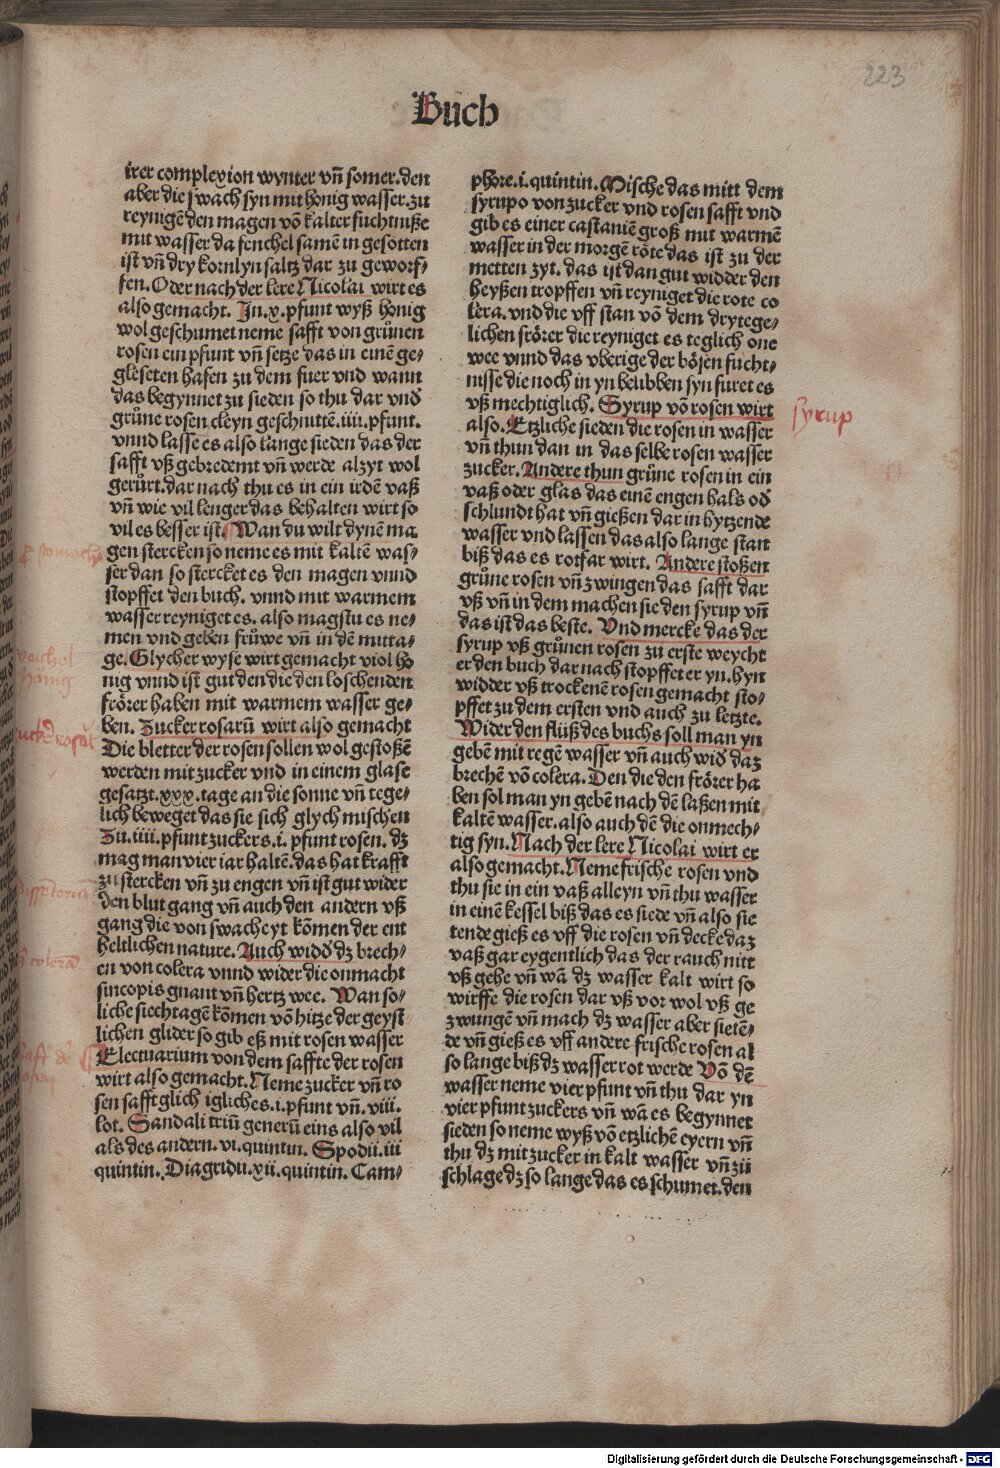 223
Buch
irer complexion wynter vñ somer. den
aber die swach syn mit honig wasser. zu
reynigē den magen vō kalter fuchtniße
mit wasser da fenchel samē in gesotten
ist vñ dry kornlyn saltz dar zu geworf⸗
fen. Oder nach der lere Nicolai wirt es
also gemacht. In .x. pfunt wyß honig
wol geschumet neme safft von grůnen
rosen ein pfunt vñ setze das in einē ge⸗
gleseten hafen zu dem fuer vnd wann
das begynnet zu sieden so thu dar vnd̄
grůne rosen cleyn geschnittē. iiii. pfunt.
vnnd lasse es also lange sieden das der
safft vß gebredemt vñ werde alzyt wol
gerůrt. dar nach thu es in ein irdē vaß
vñ wie vil lenger das behalten wirt so
vil es besser ist. Wan du wilt dynē ma
gen stercken so neme es mit kaltē was⸗
ser dan so stercket es den magen vnnd
stopffet den buch. vnnd mit warmem
wasser reyniget es. also magstu es ne⸗
men vnd geben frůwe vñ in dē mitta⸗
ge. Glycher wyse wirt gemacht viol ho
nig vnnd ist gut den die den loschenden
frörer haben mit warmem wasser ge⸗
ben. Zucker rosarū wirt also gemacht
Die bletter der rosen sollen wol gestoßē
werden mit zucker vnd in einem glase
gesatzt. xxx. tage an die sonne vñ tege⸗
lich beweget das sie sich glych mischen
Zu. iiii. pfunt zuckers. i. pfunt rosen. dz
mag man vier iar haltē. das hat krafft
zu stercken vñ zu engen vñ ist gut wider
den blut gang vñ auch den andern vß
gang die von swacheyt kōmen der ent
heltlichen nature. Auch widd̄ dz brech⸗
en von colera vnnd wider die onmacht
sincopis gnant vñ hertz wee. Wan so⸗
liche siechtagē kōmen vō hitze der geyst
lichen glider so gib eß mit rosen wasser
Electuarium von dem saffte der rosen
wirt also gemacht. Neme zucker vñ ro
sen safft glich igliches. i. pfunt vñ. viii.
lot. Sandali triū generū eins also vil
als des andern. vi. quintin. Spodii. iii
quintin. Diagridu. xii. quintin. Cam⸗
phore. i. quintin. Mische das mitt dem
syrupo von zucker vnd rosen safft vnd
gib es einer castaniē groß mit warmē
wasser in der morgē röte das ist zu der
metten zyt. das ist dan gut widder den
heyßen tropffen vñ reyniget die rote co
lera. vnd die vff stan vō dem drytege⸗
lichen frörer die reyniget es teglich one
wee vnnd das vberige der bösen fucht⸗
nisse die noch in yn belibben syn furet es
vß mechtiglich. Syrup vō rosen wirt
also. Etzliche sieden die rosen in wasser
vñ thun dan in das selbe rosen wasser
zucker. Andere thun grůne rosen in ein
vaß oder glas das einē engen hals od̄
schlundt hat vñ gießen dar in hytzende
wasser vnd lassen das also lange stan
biß das es rotfar wirt. Andere stoßen
grůne rosen vñ zwingen das safft dar
vß vñ in dem machen sie den syrup vñ
das ist das beste. Vnd mercke das der
syrup vß grůnen rosen zu erste weycht
er den buch dar nach stopffet er yn. hyn
widder vß trockenē rosen gemacht sto⸗
pffet zu dem ersten vnd auch zu letzte.
Wider den flüß des buchs soll man yn
gebē mit regē wasser vñ auch wid̄ daz
brechē vō colera. Den die den frörer ha
ben sol man yn gebē nach dē laßen mit
kaltē wasser. also auch dē die onmech⸗
tig syn. Nach der lere Nicolai wirt er
also gemacht. Neme frische rosen vnd
thu sie in ein vaß alleyn vñ thu wasser
in einē kessel biß das es siede vñ also sie
tende gieß es vff die rosen vñ decke daz
vaß gar eygentlich das der rauch nitt
vß gehe vñ wā dz wasser kalt wirt so
wirffe die rosen dar vß vor wol vß ge
zwungē vñ mach dz wasser aber sietē⸗
de vñ gieß es vff andere frische rosen al
so lange biß dz wasser rot werde Vō dē
wasser neme vier pfunt vñ thu dar yn
vier pfunt zuckers vñ wā es begynnet
sieden so neme wyß vō etzlichē eyern vñ
thu dz mit zucker in kalt wasser vñ zů
schlage dz so lange das es schumet. den
syrup
veichel
honig
Digitalisierung gefördert durch die Deutsche Forschungsgemeinschaft - DFG